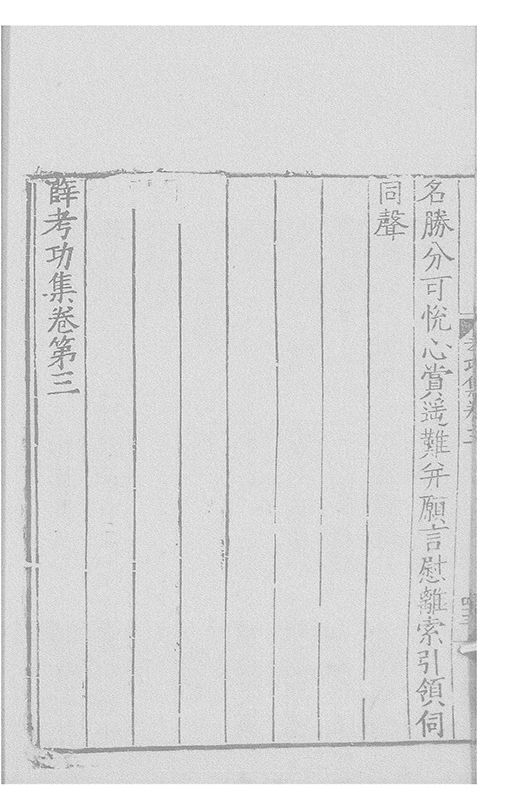 名勝分可悅心賞遥難并願言慰離索引領伺
同聲
薛考功集卷第三